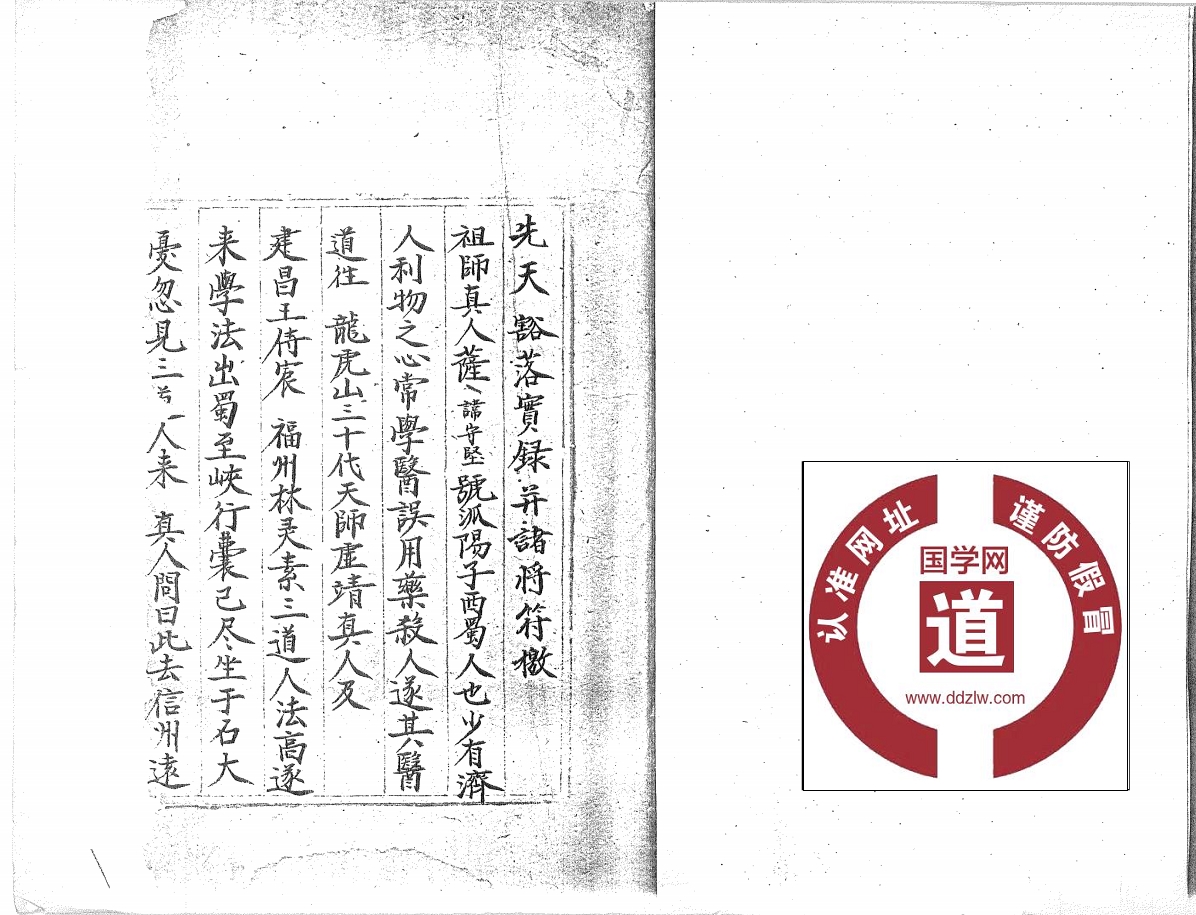 先天豁落實録并諸将符檄
祖師真人薩、諱守堅號泒陽子西蜀人也少有濟
人利物之心常學醫誤用藥殺人遂其醫
道往 龍虎山三十代天師虚靖真人及
建昌王侍宸 福州林灵素三道人法高遂
来學法出蜀至峽行囊已尽坐于石大
憂忽見三 人来 真人問曰此去信州逺
认准网址 谨防假冒
国学网
道
www.ddzlw.com